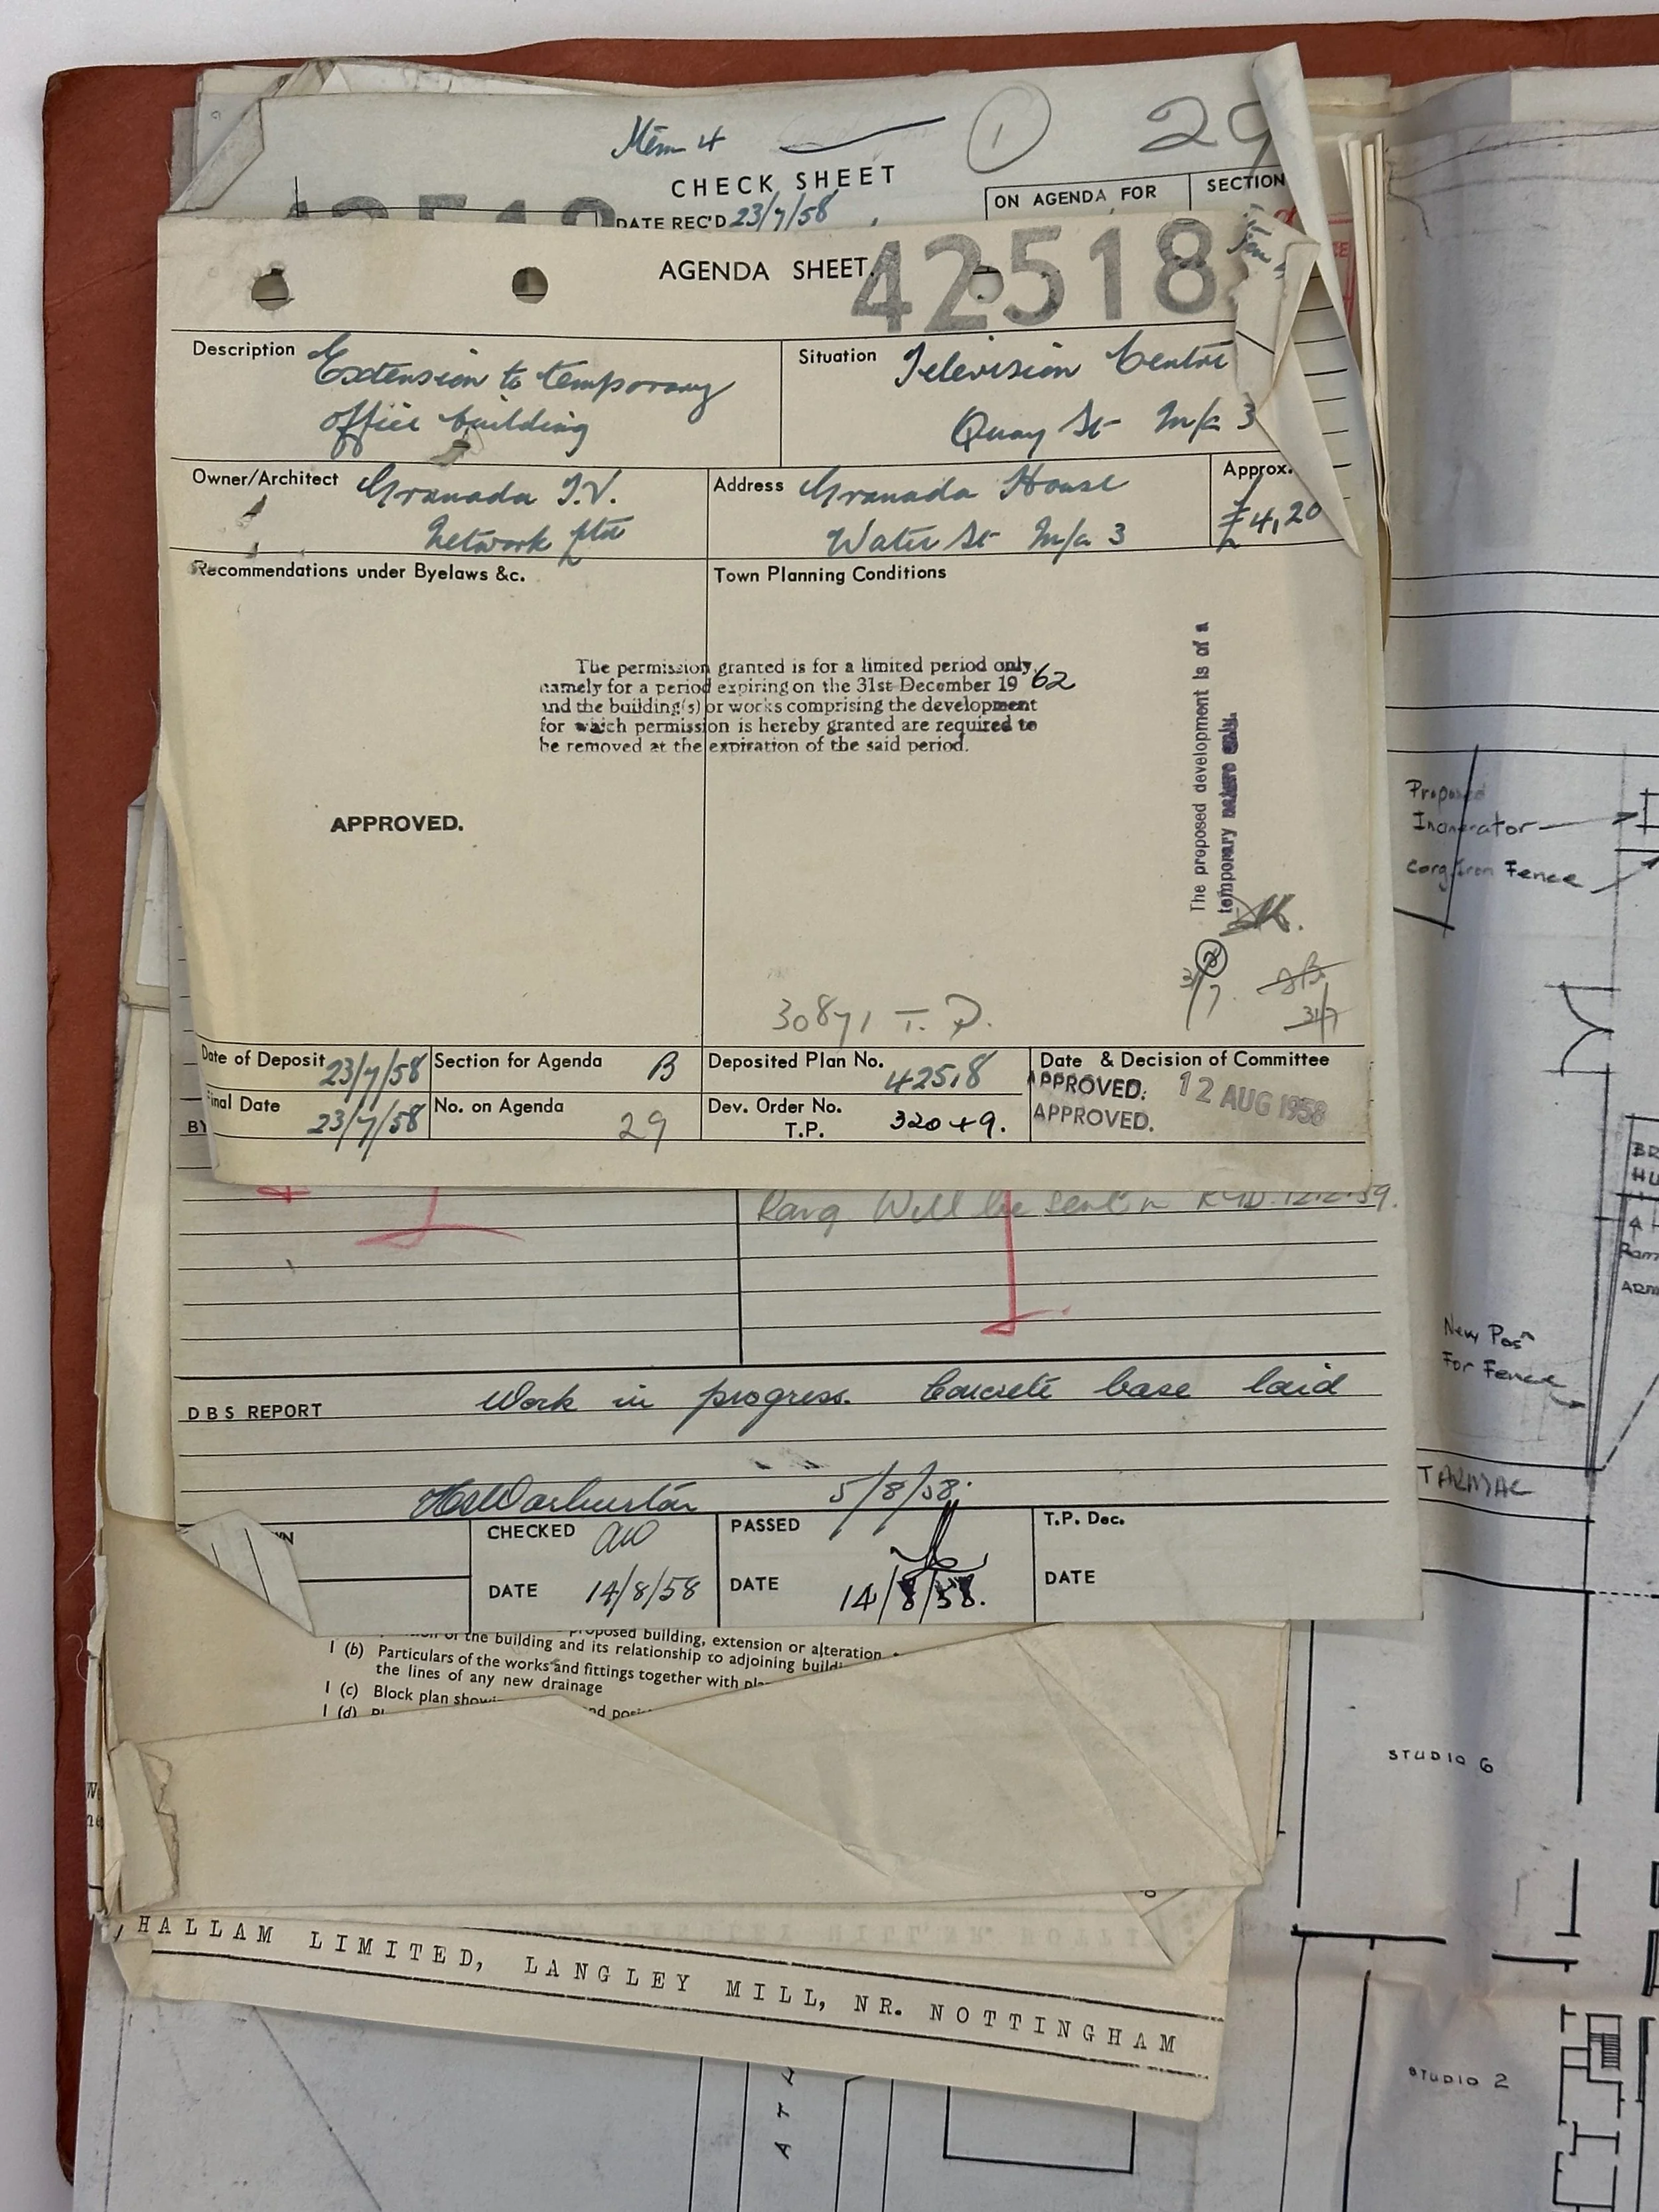 Item 4
1
29
CHECK SHEET
DATE REC'D 23/7/58
ON AGENDA FOR
SECTION
AGENDA SHEET.
42518
Description Extension to temporary
office building
Situation Television Centre
Quay St M/c 3
Owner/Architect Granada T.V.
Network Ltd
Address Granada House
Water St M/c 3
Approx.
£4,20
Recommendations under Byelaws &c.
Town Planning Conditions
The permission granted is for a limited period only,
namely for a period expiring on the 31st December 19 62
and the building(s) or works comprising the development
for which permission is hereby granted are required to
be removed at the expiration of the said period.
The proposed development is of a
temporary nature only.
APPROVED.
31/7
31/7
30871 T.P.
Date of Deposit 23/7/58
Section for Agenda B
Deposited Plan No. 42518
Date & Decision of Committee
APPROVED. 12 AUG 1958
APPROVED.
Final Date 23/7/58
No. on Agenda 29
Dev. Order No.
T.P. 32049.
BY
Will be sent in
DBS REPORT
Work in progress. Concrete base laid
Warburton 5/8/58.
CHECKED
DATE 14/8/58
PASSED
DATE 14/8/58.
T.P. Dec.
DATE
proposed building, extension or alteration
of the building and its relationship to adjoining
1 (b) Particulars of the works and fittings together with
the lines of any new drainage
1 (c) Block plan
1 (d)
HALLAM LIMITED, LANGLEY MILL, NR. NOTTINGHAM
Proposed
Incinerator
Corg. Iron Fence
New Posn
For Fence
TARMAC
STUDIO 6
STUDIO 2